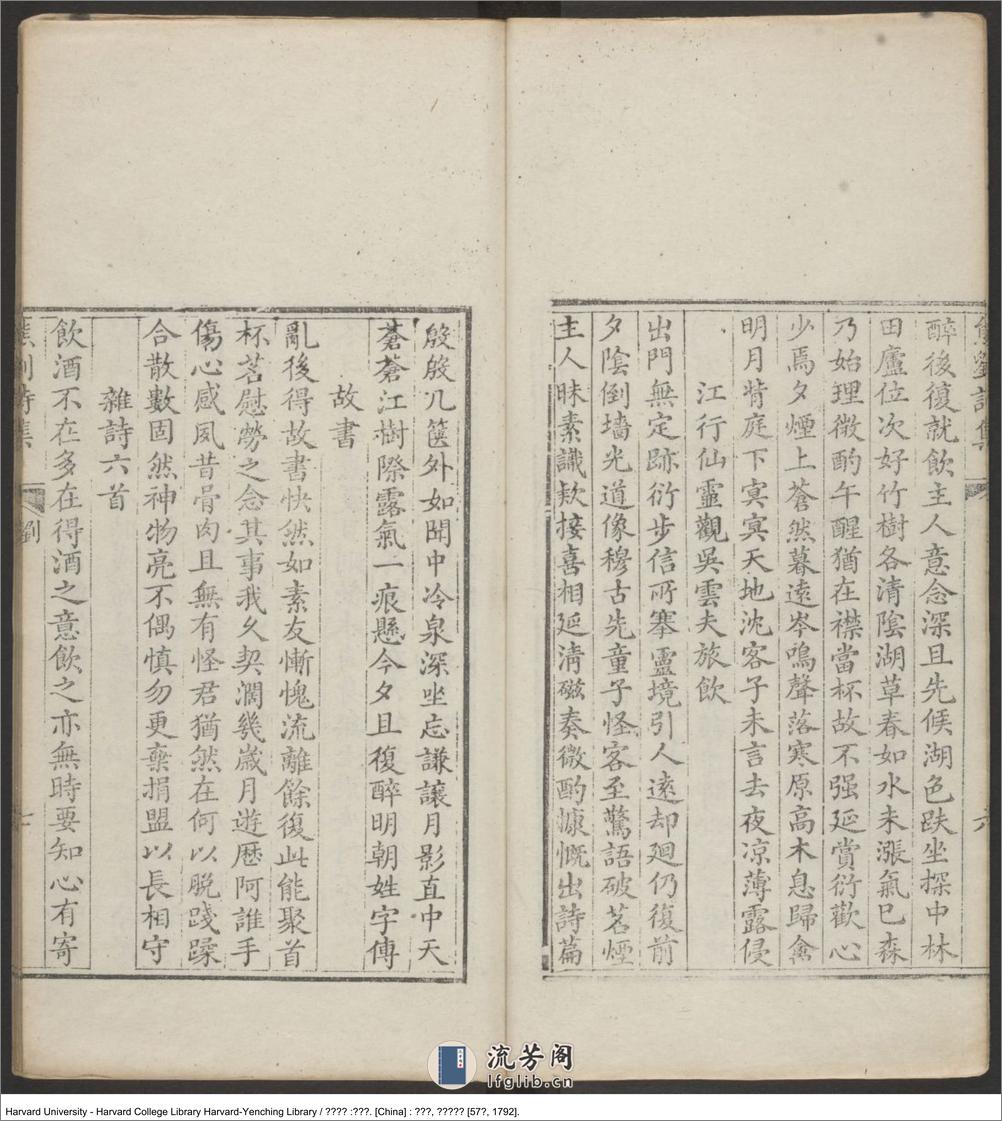 醉後復就飲主人意念深且先候湖色趺坐探中林
田廬位次好竹樹各清陰湖草春如水未漲氣已森
乃始理微酌午醒猶在襟當杯故不强延賞衍歡心
少焉夕煙上蒼然暮遠岑鳴聲落寒原高木息歸禽
明月背庭下寞寞天地沈客子未言去夜凉薄露侵
江行仙靈觀吳雲夫旅飲
出門無定跡衍步信所搴靈境引人遠却廻仍復前
夕陰倒墻光道像穆古先童子怪客至驚語破茗煙
主人昧素識欵接喜相延淸磁奏微酌慷慨出詩篇
殷殷几篋外如聞中冷泉深坐忘謙讓月影直中天
蒼蒼江樹際露氣一痕懸今夕且復醉明朝姓字傳
故書
亂後得故書快然如素友慚愧流離餘復此能聚首
杯茗慰勞之念其事我久契濶幾歲月遊歷阿誰手
傷心感夙昔骨肉且無有怪君猶然在何以脫踐蹂
合散數固然神物亮不偶慎勿更棄捐盟以長相守
雜詩六首
飲酒不在多在得酒之意飲之亦無時要知心有寄
劉
七
流芳阁
lfglib.cn
Harvard University - Harvard College Library Harvard-Yenching Library / ???? :???. [China] : ???, ????? [57?, 1792].